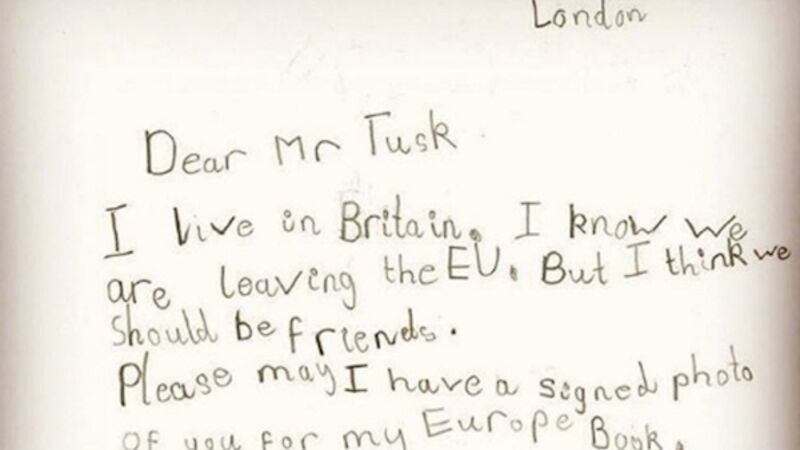 London
Dear Mr Tusk
I live in Britain. I know we
are leaving the EU. But I think we
should be friends.
Please may I have a signed photo
of you for my Europe Book.